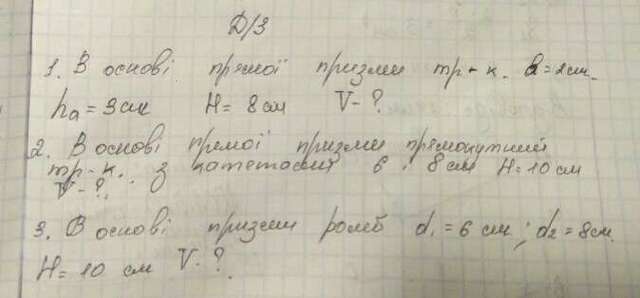 Д/З
1. В основі прямої призми тр-к. a=2см.
ha = 3см H= 8см V-?
2. В основі прямої призми прямокутний
тр-к. з катетами 6 і 8см H=10см
V-?
3. В основі призми ромб d1=6см; d2=8см.
H=10 см V-?